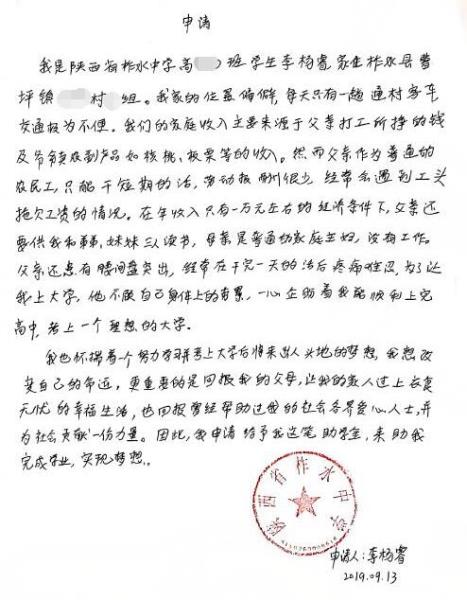 申请
我是陕西省柞水中学高 班学生李杨睿家住柞水县曹
坪镇 村 组。我家的位置偏僻,每天只有一趟通村客车
交通极为不便。我们的家庭收入主要来源于父亲打工所挣的钱
及爷爷卖农副产品如核桃、板栗等的收入。然而父亲作为普通的
农民工,只能干短期的活,劳动报酬很少 经常会遇到工头
拖欠工资的情况。在年收入只有一万元左右的经济条件下,父亲还
要供我和弟弟,妹妹三人读书,母亲是普通的家庭主妇,没有工作。
父亲还患有腰间盘突出,经常在干完一天的活后疼痛难忍,为了让
我上大学,他不顾自己身体上的伤累,一心企盼着我能顺利上完
高中,考上一个理想的大学。
我也怀揣着一个努力学习并考上大学后将来出人头地的梦想,我想改
变自己的命运,更重要的是回报我的父母,让我的家人过上衣食
无忧的幸福生活,也回报曾经帮助过我的社会各界爱心人士,并
为社会贡献一份力量。因此,我申请给予我这笔助学金,来助我
完成学业,实现梦想。
陕西省柞水中学
申请人:李杨睿
2019.09.13